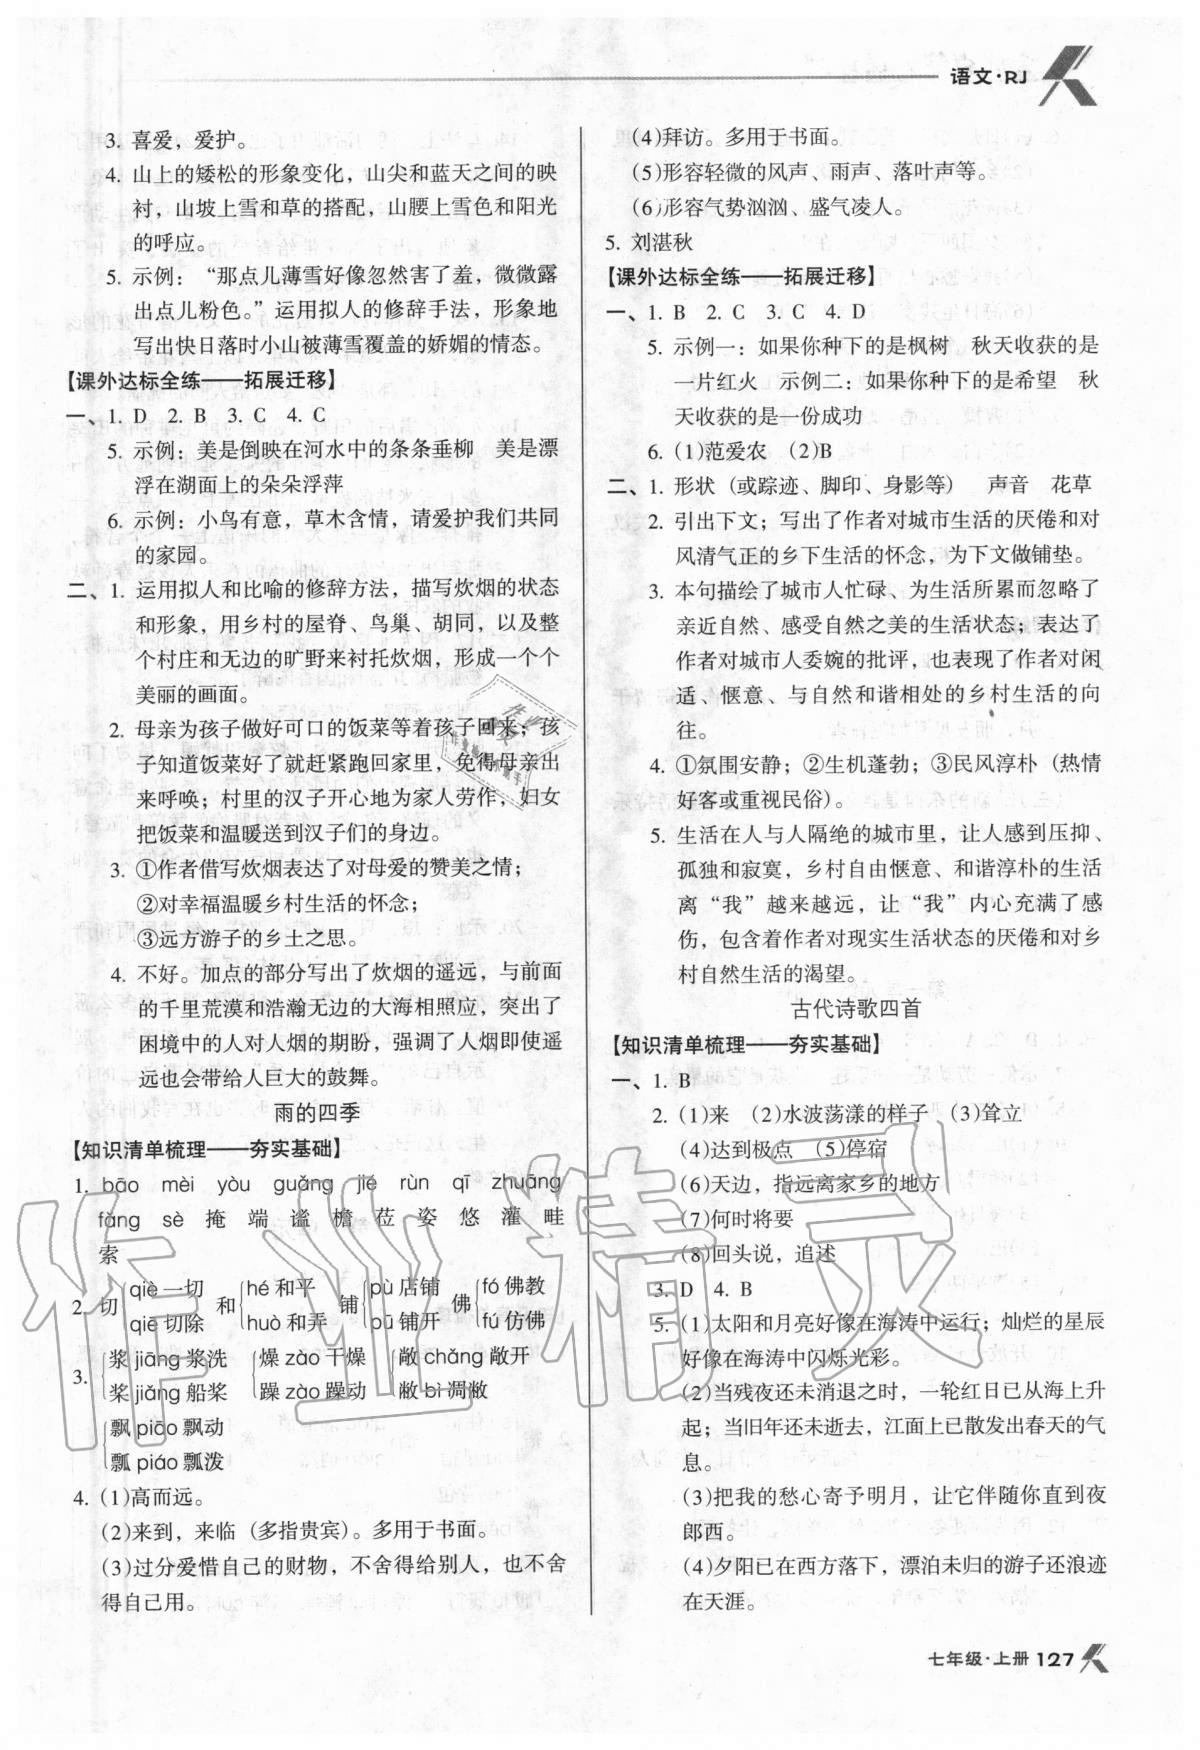 语文·RJ
3. 喜爱，爱护。
4. 山上的矮松的形象变化，山尖和蓝天之间的映
衬，山坡上雪和草的搭配，山腰上雪色和阳光
的呼应。
5. 示例：“那点儿薄雪好像忽然害了羞，微微露
出点儿粉色。”运用拟人的修辞手法，形象地
写出快日落时小山被薄雪覆盖的娇媚的情态。
【课外达标全练——拓展迁移】
一、1. D 2. B 3. C 4. C
5. 示例：美是倒映在河水中的条条垂柳 美是漂
浮在湖面上的朵朵浮萍
6. 示例：小鸟有意，草木含情，请爱护我们共同
的家园。
二、1. 运用拟人和比喻的修辞方法，描写炊烟的状态
和形象，用乡村的屋脊、鸟巢、胡同，以及整
个村庄和无边的旷野来衬托炊烟，形成一个个
美丽的画面。
2. 母亲为孩子做好可口的饭菜等着孩子回来；孩
子知道饭菜好了就赶紧跑回家里，免得母亲出
来呼唤；村里的汉子开心地为家人劳作，妇女
把饭菜和温暖送到汉子们的身边。
3. ①作者借写炊烟表达了对母爱的赞美之情；
②对幸福温暖乡村生活的怀念；
③远方游子的乡土之思。
4. 不好。加点的部分写出了炊烟的遥远，与前面
的千里荒漠和浩瀚无边的大海相照应，突出了
困境中的人对人烟的期盼，强调了人烟即使遥
远也会带给人巨大的鼓舞。
雨的四季
【知识清单梳理——夯实基础】
1. bāo mèi yòu guǎng jié rùn qī zhuāng
fǎng sè 掩 端 谧 檐 莅 姿 悠 灌 畦
索
2. 切 qiè 一切 qiē 切除 和 hé 和平 huò 和弄 铺 pù 店铺 pū 铺开 佛 fó 佛教 fú 仿佛
3. 浆 jiāng 浆洗 桨 jiǎng 船桨 燥 zào 干燥 躁 zào 躁动 敞 chǎng 敞开 敝 bì 凋敝
飘 piāo 飘动
瓢 piáo 瓢泼
4. (1)高而远。
(2)来到，来临（多指贵宾）。多用于书面。
(3)过分爱惜自己的财物，不舍得给别人，也不舍
得自己用。
(4)拜访。多用于书面。
(5)形容轻微的风声、雨声、落叶声等。
(6)形容气势汹汹、盛气凌人。
5. 刘湛秋
【课外达标全练——拓展迁移】
一、1. B 2. C 3. C 4. D
5. 示例一：如果你种下的是枫树 秋天收获的是
一片红火 示例二：如果你种下的是希望 秋
天收获的是一份成功
6. (1)范爱农 (2)B
二、1. 形状（或踪迹、脚印、身影等） 声音 花草
2. 引出下文；写出了作者对城市生活的厌倦和对
风清气正的乡下生活的怀念，为下文做铺垫。
3. 本句描绘了城市人忙碌、为生活所累而忽略了
亲近自然、感受自然之美的生活状态；表达了
作者对城市人委婉的批评，也表现了作者对闲
适、惬意、与自然和谐相处的乡村生活的向
往。
4. ①氛围安静；②生机蓬勃；③民风淳朴（热情
好客或重视民俗）。
5. 生活在人与人隔绝的城市里，让人感到压抑、
孤独和寂寞，乡村自由惬意、和谐淳朴的生活
离“我”越来越远，让“我”内心充满了感
伤，包含着作者对现实生活状态的厌倦和对乡
村自然生活的渴望。
古代诗歌四首
【知识清单梳理——夯实基础】
一、1. B
2. (1)来 (2)水波荡漾的样子 (3)耸立
(4)达到极点 (5)停宿
(6)天边，指远离家乡的地方
(7)何时将要
(8)回头说，追述
3. D 4. B
5. (1)太阳和月亮好像在海涛中运行；灿烂的星辰
好像在海涛中闪烁光彩。
(2)当残夜还未消退之时，一轮红日已从海上升
起；当旧年还未逝去，江面上已散发出春天的气
息。
(3)把我的愁心寄予明月，让它伴随你直到夜
郎西。
(4)夕阳已在西方落下，漂泊未归的游子还浪迹
在天涯。
作业精灵
七年级·上册 127